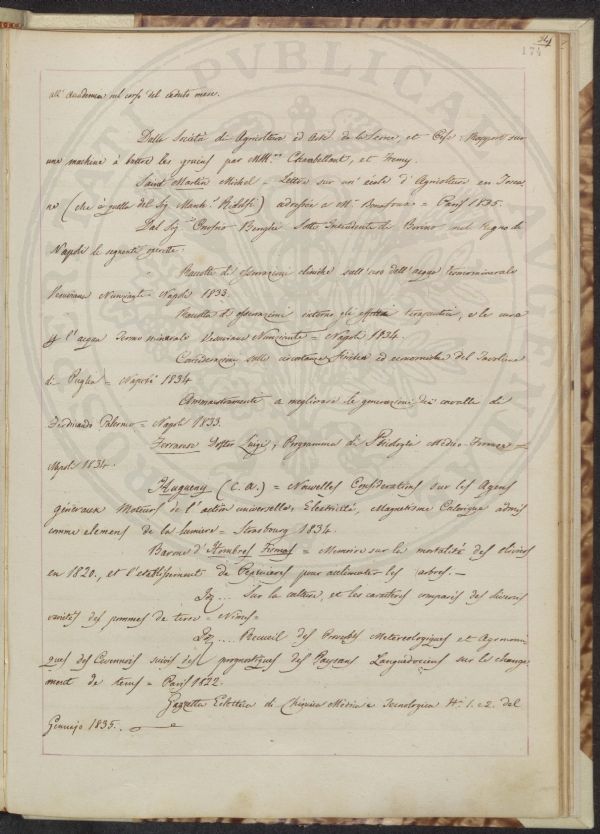 34
174
all' Accademia nel corso del caduto mese.
Dalla Società di Agricoltura ed Arti de la Seine, et Oise = Rapport sur
une machine à battre les grains par MM.rs Chambellant, et Fremy.
Saint Martin Michel = Lettre sur un' école d'Agriculture en Tosca-
ne (che è quella del Sig. March.e Ridolfi) adressée a M.r = Paris 1835.
Dal Sig. Onofrio Sotto Intendente di nel Regno di
Napoli le seguenti operette.
Raccolta di osservazioni cliniche sull'uso dell'acqua Termominerale
Vesuviana Nunziante = Napoli 1833.
Raccolta di osservazioni intorno gli effetti terapeutici, e la cura
p l'acqua Termo minerale Vesuviana Nunziante = Napoli 1834.
Considerazioni sulle circostanze fisiche ed economiche del Tavoliere
di Puglia = Napoli 1834
Ammaestramento a migliorare le generazioni dei cavalli di
Ferdinando Palermo = Napoli 1833.
Ferrarese Dottor Luigi; Programma di Psicologia Medico-Forense =
Napoli 1834.
Hugueny (C. A.) = Nouvelles Considerations sur les Agens
généraux Moteurs de l'action universelle, Électricité, Magnetisme Calorique admis
comme elemens de la lumiere = Strasbourg 1834.
Baron d'Hombres Firmas = Memoire sur la mortalité des oliviers
en 1820., et l'etablissement de Pepinieres pour acclimater les arbres. —
Sur la culture, et les caractères comparés des diverses
variétés des pommes de terre = Nimes =
Recueil des Proverbes Météreologiques et Agronomi-
ques des Cevennois suivis des prognostiques des Paysans Languedociens sur le change-
ment de tems = Paris 1822.
Gazzetta Eclettica di Chimica Medica e Tecnologica N.i 1. e 2. del
Gennajo 1835.